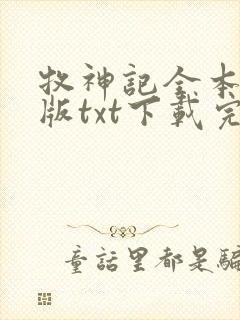 牧神記全本
版txt下載完
童話里都是騙